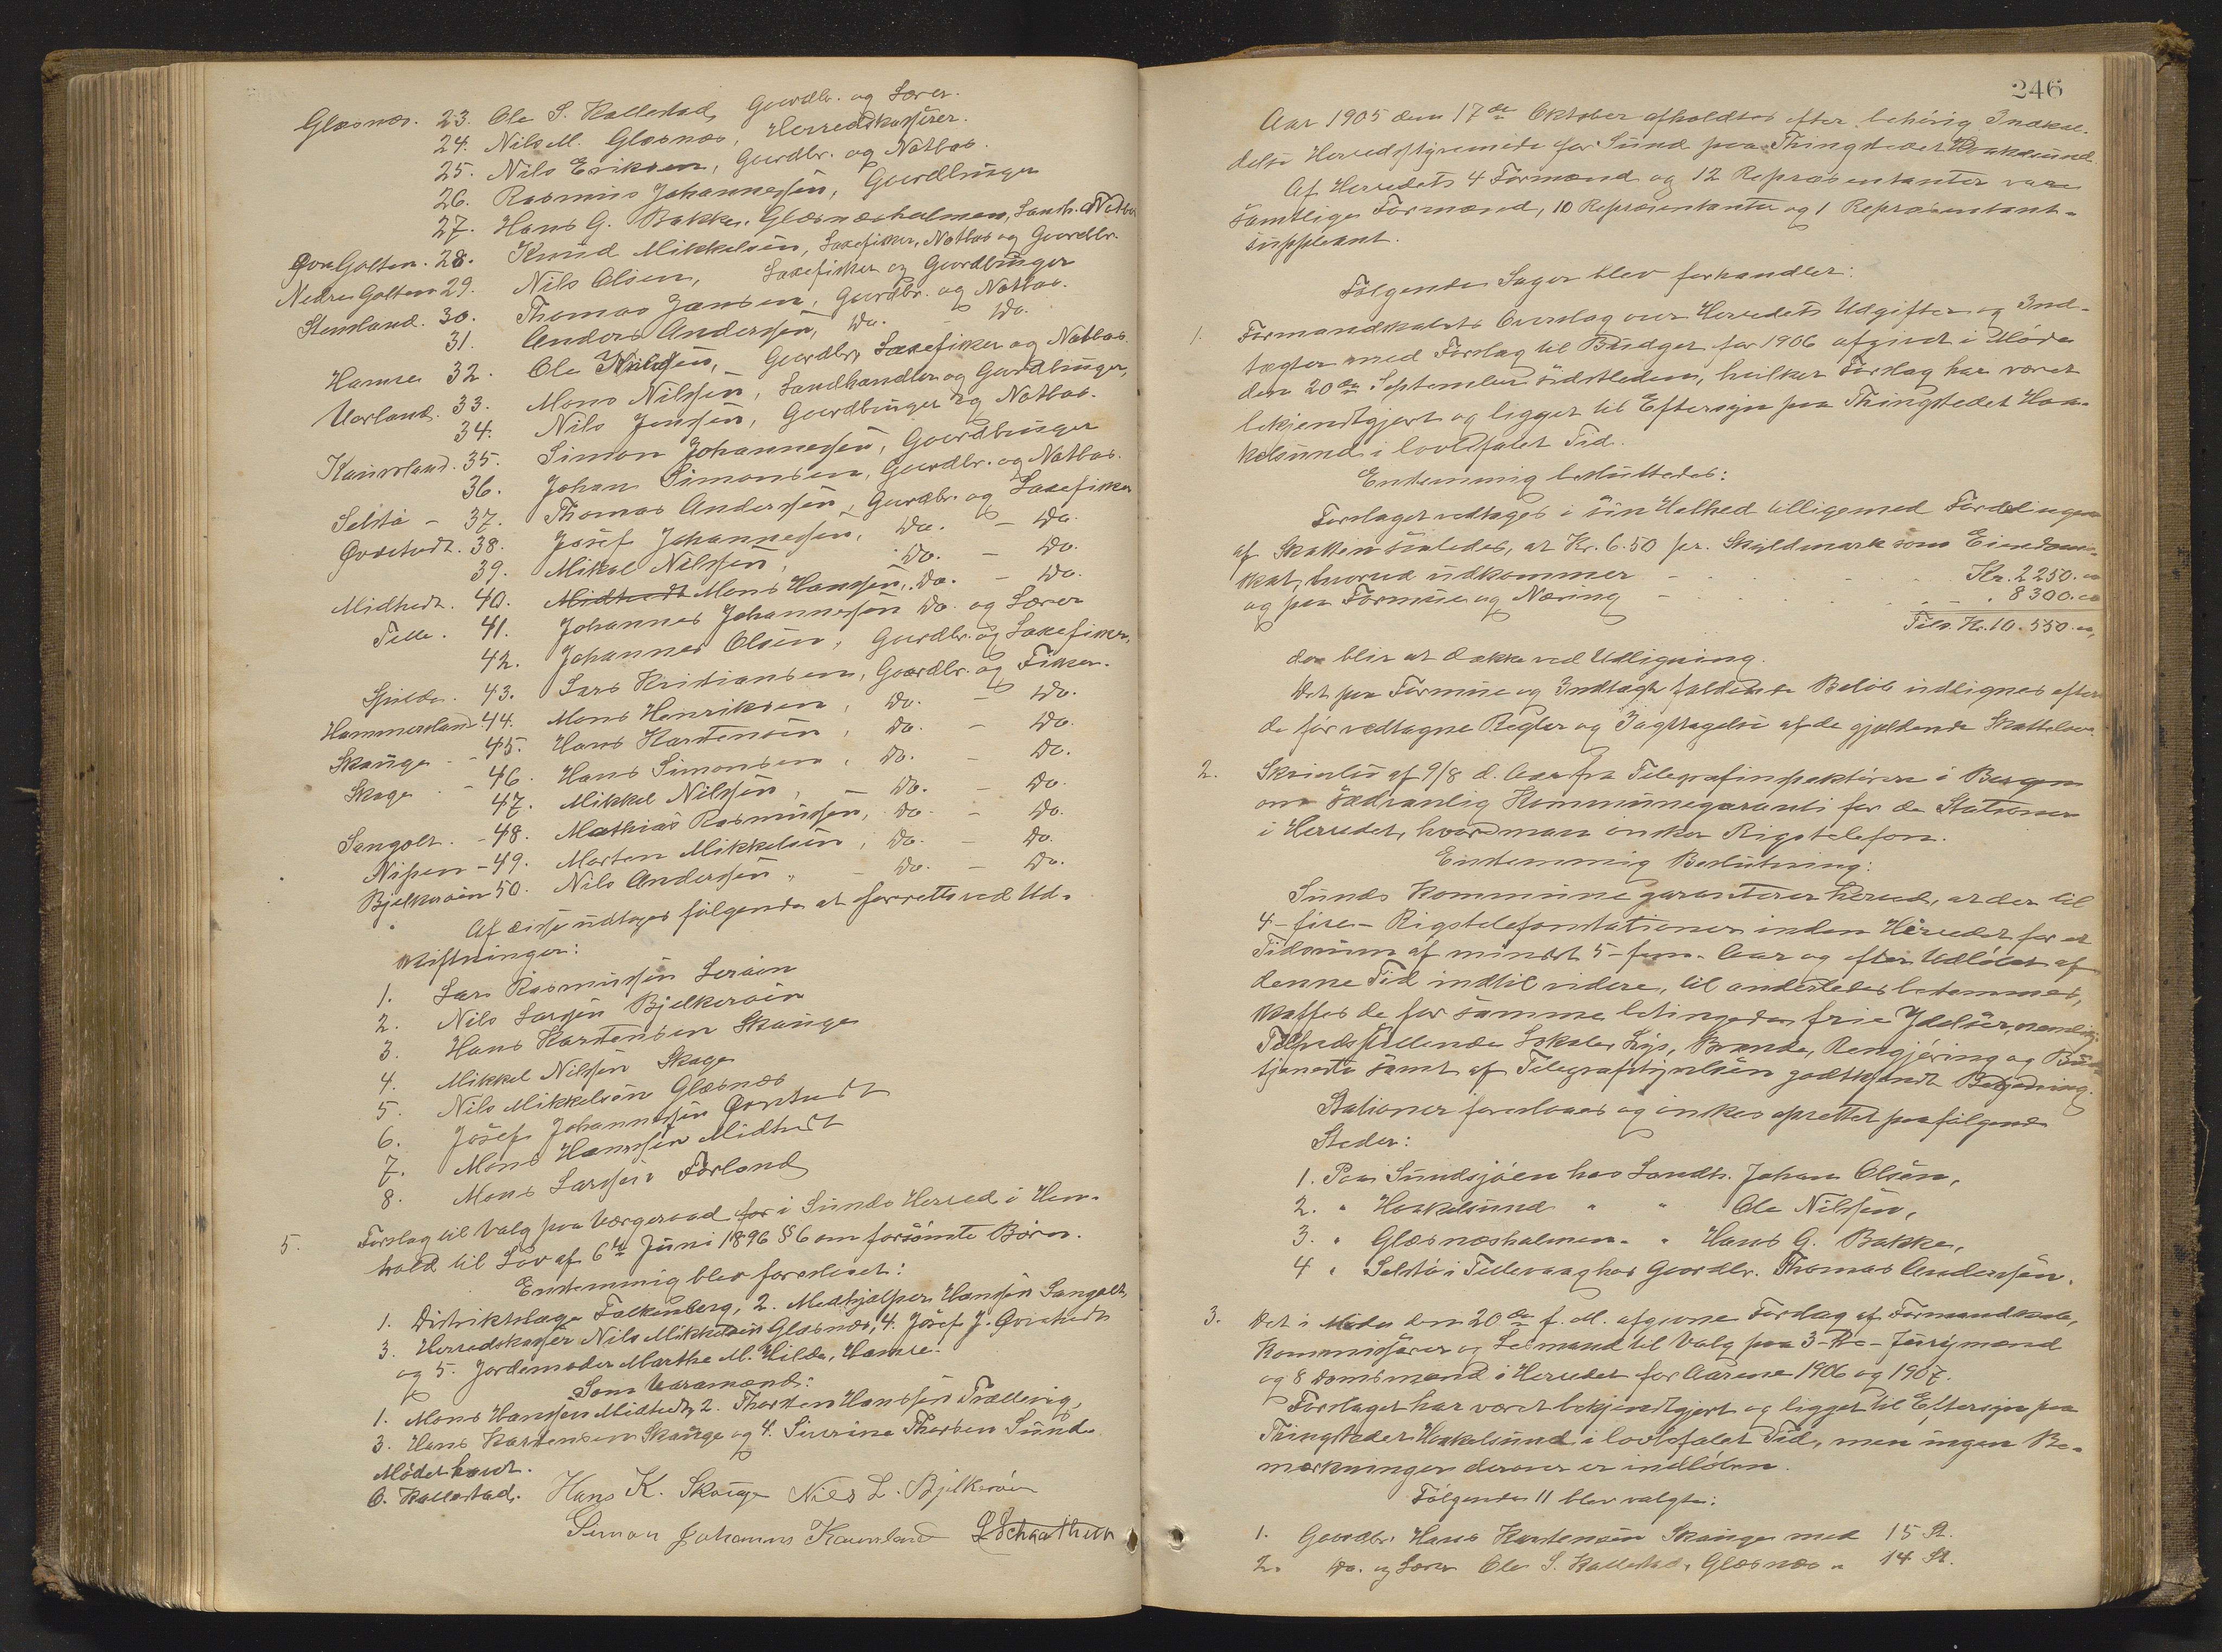 Glesnæs. 23. Ole S. Kallestad, Gaardbr. og Lærer.
24. Nils M. Glesnæs, Herredskasserer.
25. Nils Eriksen, Gaardbr. og Notbas.
26. Rasmus Johannesen, Gaardbruger
27. Hans G. Bakke, Glesnæsholmen, Landh. & Notbas
Øvre Golten. 28. Knud Mikkelsen, Laxefisker, Notbas og Gaardbr.
Nedre Golten 29. Nils Olsen, Laxefisker og Gaardbruger
Steinland. 30. Thomas Jansen, Gaardbr. og Notbas.
31. Anders Anderssen, Do. - Do.
Hamre 32. Ole Knudsen, Gaardbr., Laxefisker og Notbas.
Vorland. 33. Mons Nilssen, Landhandler og Gaardbruger,
34. Nils Jenssen, Gaardbruger og Notbas.
Kausland. 35. Simon Johannessen, Gaardbruger
36. Johan Simonsen, Gaardbr. og Notbas.
Selstø - 37. Thomas Anderssen, Gaardbr. og Laxefisker
Øvretvedt. 38. Josef Johannessen, Do. - Do.
39. Mikal Nilssen, Do. - Do.
Midtvedt. 40. Midtvedt Mons Hanssen, Do. - Do.
Telle. 41. Johannes Johannessen Do. og Lærer
42. Johannes Olsen, Gaardbr. og Laxefisker,
Spilde. 43. Lars Kristiansen, Gaardbr. og Fisker.
Hammersland 44. Mons Henriksen, Do. - Do.
Skauge - 45. Hans Karstensen, Do. - Do.
Skoge - 46. Hans Simonsen, Do. - Do.
47. Mikkel Nilssen, Do. - Do.
Sangolt. - 48. Mathias Rasmussen, Do. - Do.
Nipen - 49. Morten Mikkelsen, Do. - Do.
Bjelkerøen 50. Nils Anderssen, - Do. - Do.
Af disse udtages følgende at forrette ved Ud-
skiftninger:
1. Lars Rasmussen Lerøen
2. Nils Larsen Bjelkerøen
3. Hans Karstensen Skauge
4. Mikkel Nilssen Skoge
5. Nils Mikkelsen Glesnæs
6. Josef Johannessen Øvretvedt
7. Mons Hanssen Midtvedt
8. Mons Larssen Førland
5. Forslag til Valg paa Værgeraad for i Sunds Herred i Hen-
hold til Lov af 6te Juni 1896 § 6 om forsømte Børn.
Enstemmig blev foreslaaet:
1. Distriktslæge Falkenberg, 2. Medhjælper Hanssen Sangolt,
3. Herredskasser Nils Mikkelsen Glesnæs, 4. Josef J. Øvretvedt
og 5. Jordemoder Marthe M. Hilde, Hamre.
Som Varamænd:
1. Mons Hanssen Midtvedt, 2. Thorsten Hanssen Trællevig,
3. Hans Karstensen Skauge og 4. Severine Thorsen Sunde
Mødet hævet.
O. Kallestad. Hans K. Skauge Nils L. Bjelkerøen
Simon Johannes Kausland L Schaathun
246
Aar 1905 den 17de Oktober afholdtes efter behørig Indkal-
delse Herredsstyremøde for Sund paa Thingstedet Haakelsund.
Af Herredets 4 Formænd og 12 Repræsentanter vare
samtlige Formænd, 10 Repræsentanter og 1 Repræsentant-
suppleant.
Følgende Sager blev forhandlet:
1. Formandskabets Overslag over Herredets Udgifter og Ind-
tægter med Forslag til Budget for 1906 afgivet i Møde
den 20de September sidstleden, hvilket Forslag har været
bekjendtgjort og ligget til Eftersyn paa Thingstedet Haa-
kelsund i lovbefalet Tid.
Enstemmig besluttedes:
Forslaget vedtages i sin Helhed tilligemed Fordelingen
af Skatten saaledes, at Kr. 6.50 pr. Skyldmark som Eiendoms-
skat, hvorved udkommer - - - Kr. 2250.00
og paa Formue og Næring - - - 8300.00
Tils. Kr. 10.550.00,
der blir at dække ved Udligning.
Det paa Formue og Indtægt faldende Beløb udlignes efter
de før vedtagne Regler og Iagttagelse af de gjældende Skattelove.
2. Skrivelse af 9/8 d. Aar fra Telegrafinspektøren i Bergen
om sædvanlig Kommunegaranti for de Stationer
i Herredet, hvor man ønsker Rigstelefon.
Enstemmig Beslutning:
Sunds Kommune garanterer herved, at der til
4 - fire - Rigstelefonstationer inden Herredet for et
Tidsrum af mindst 5 - fem - Aar og efter Udløbet af
denne Tid indtil videre, til anderledes bestemmes,
skaffes de for samme betingede frie Ydelser, nemlig:
Tilfredsstillende Lokaler Lys, Brænde, Rengjøring og Bud-
tjeneste samt af Telegrafstyrelsen godkjendt Betjening.
Stationer foreslaaes og ønskes oprettet paa følgende
Steder:
1. Paa Sundsjøen hos Landh. Johan Olsen,
2. " Haakelsund " " Ole Nilssen,
3. " Glesnæsholmen " " Hans G. Bakke,
4 " Selstø i Tellevaag hos Gaardbr. Thomas Anderssen.
3. Det i Møde den 20de f. M. afgivne Forslag af Formandskab,
Kommissærer og Lensmand til Valg paa 3 - tre - Jurymænd
og 8 Domsmænd i Herredet for Aarene 1906 og 1907.
Forslaget har været bekjendtgjort og ligget til Eftersyn paa
Thingstedet Haakelsund i lovbefalet Tid, men ingen Be-
mærkninger derover er indløben.
Følgende 11 blev valgte:
1. Gaardbr. Hans Karstensen Skauge med 15 St.
2. Do. og Lærer Ole S. Kallestad, Glesnæs " 14 St.